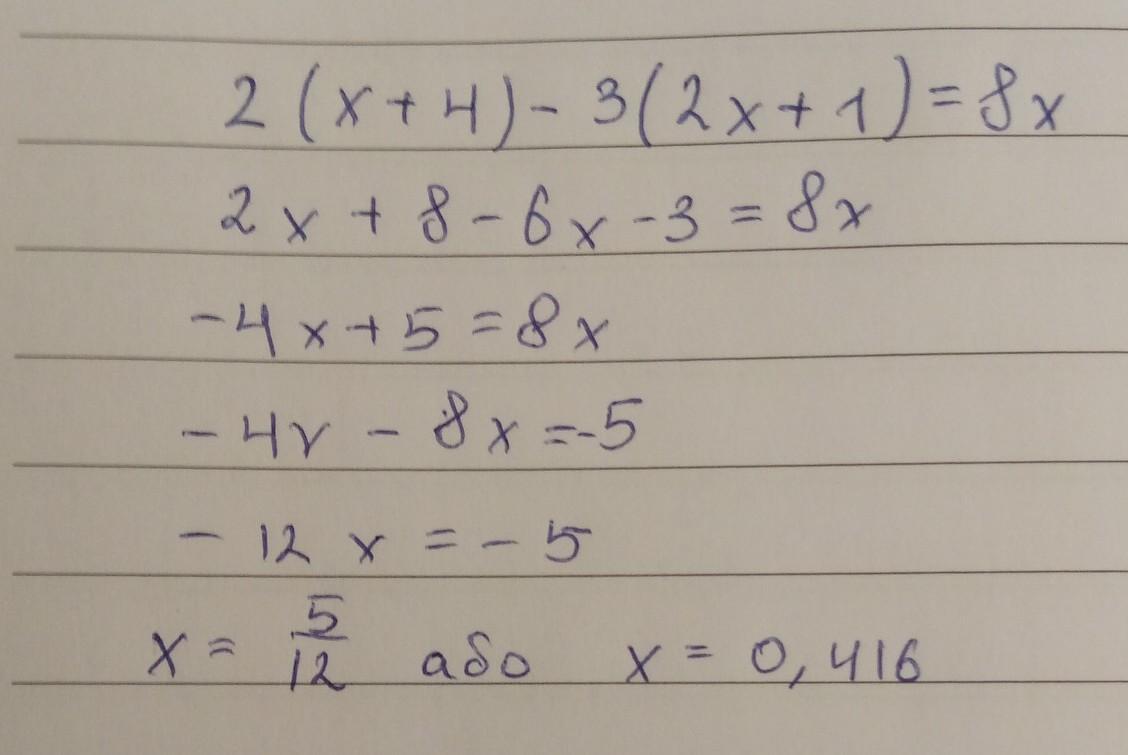 2(x+4)-3(2x+1)=8x
2x+8-6x-3=8x
-4x+5=8x
-4x-8x=-5
-12x=-5
x=5/12 або x=0,416